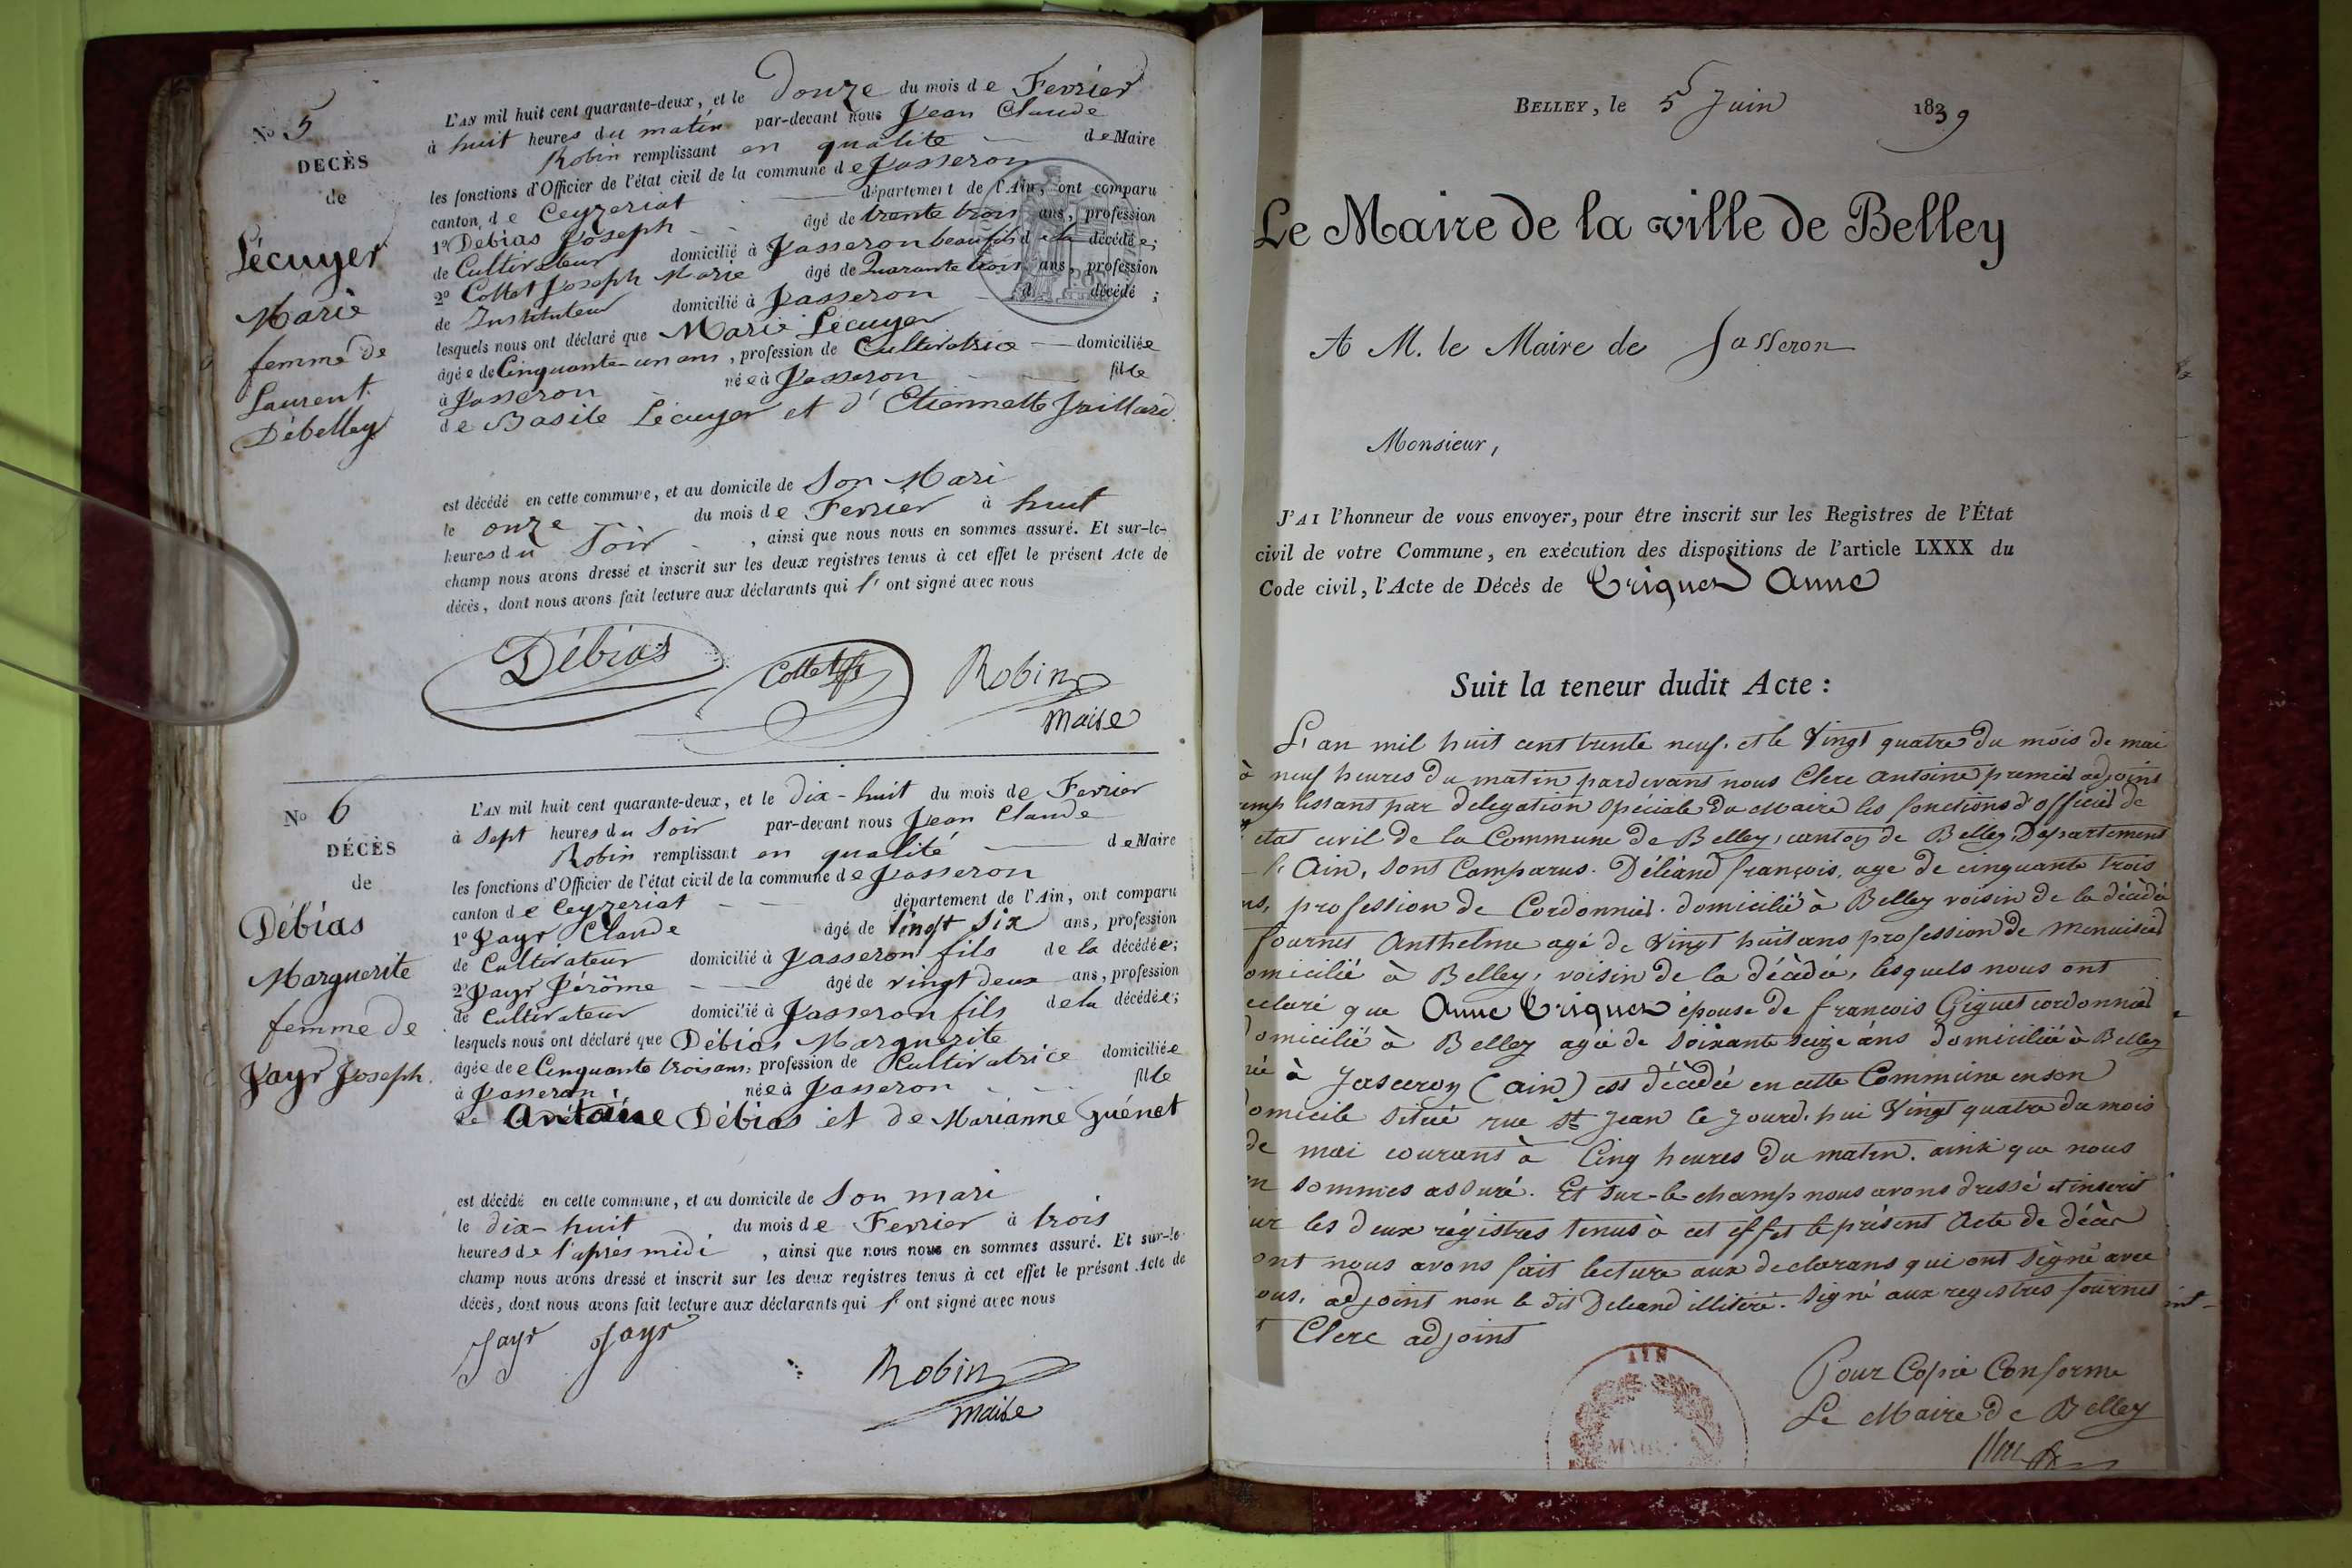 N° 5
DECÈS
de
Lécuyer
Marie
femme de
Laurent
Débelley
L'AN mil huit cent quarante-deux, et le Douze du mois de Fevrier
à huit heures du matin par-devant nous Jean Claude
Robin remplissant en qualité de Maire
les fonctions d'Officier de l'état civil de la commune de Jasseron
canton de Ceyzeriat département de l'Ain, ont comparu
1° Debias Joseph âgé de trente trois ans, profession
de Cultivateur domicilié à Jasseron beau fils de la décédée;
2° Collet Joseph Marie âgé de Quarante trois ans, profession
de Instituteur domicilié à Jasseron d décédé ;
lesquels nous ont déclaré que Marie Lécuyer
âgée de Cinquante-un ans, profession de Cultivatrice domiciliée
à Jasseron née à Jasseron fille
de Basile Lécuyer et d'Etiennette Jaillard
est décédé en cette commune, et au domicile de Son Mari
le onze du mois de Fevrier à huit
heures du Soir, ainsi que nous nous en sommes assuré. Et sur-le-
champ nous avons dressé et inscrit sur les deux registres tenus à cet effet le présent Acte de
décès, dont nous avons fait lecture aux déclarants qui l'ont signé avec nous
Débias Collet Robin
maire
N° 6
DÉCÈS
de
Débias
Marguerite
femme de
Jayr Joseph.
L'AN mil huit cent quarante-deux, et le dix-huit du mois de Fevrier
à Sept heures du Soir par-devant nous Jean Claude
Robin remplissant en qualité de Maire
les fonctions d'Officier de l'état civil de la commune de Jasseron
canton de Ceyzeriat département de l'Ain, ont comparu
1° Jayr Claude âgé de Vingt Six ans, profession
de Cultivateur domicilié à Jasseron fils de la décédée;
2° Jayr Jérôme âgé de vingt deux ans, profession
de Cultivateur domicilié à Jasseron fils de la décédée;
lesquels nous ont déclaré que Débias Marguerite
âgée de Cinquante trois ans, profession de Cultivatrice domiciliée
à Jasseron née à Jasseron fille
de Antoine Débias et de Marianne Guénet
est décédé en cette commune, et au domicile de Son mari
le dix-huit du mois de Fevrier à trois
heures de l'après midi, ainsi que nous nous en sommes assuré. Et sur-le-
champ nous avons dressé et inscrit sur les deux registres tenus à cet effet le présent Acte de
décès, dont nous avons fait lecture aux déclarants qui l'ont signé avec nous
Jayr Jayr Robin
maire
BELLEY, le 5 Juin 1839
Le Maire de la ville de Belley
A M. le Maire de Jasseron
Monsieur,
J'AI l'honneur de vous envoyer, pour être inscrit sur les Registres de l'État
civil de votre Commune, en exécution des dispositions de l'article LXXX du
Code civil, l'Acte de Décès de Anne
Suit la teneur dudit Acte :
L'an mil huit cent trente neuf, et le Vingt quatre du mois de mai
à neuf heures du matin pardevant nous Clerc Antoine premier adjoint
emplissant par delegation Spéciale du Maire les fonctions d'officier de
etat civil de la Commune de Belley, canton de Belley, Departement
l'Ain, sont Comparus. Déliand françois, age de cinquante trois
ns, profession de Cordonnier. domicilié à Belley voisin de la décédé
fournet Anthelme agé de Vingt huit ans profession de menuisier
omicilié à Belley, voisin de la décédée, lesquels nous ont
eclaré que Anne épouse de françois Giguet cordonnier
omicilié à Belley agée de Soixante Seize ans domiciliée à Belley
née à Jasceron (ain) est décédée en cette Commune en son
domicile Situé rue St Jean ce jourd'hui Vingt quatre du mois
de mai courant à Cinq heures du matin. ainsi que nous
en sommes assuré. Et sur-le-champ nous avons dressé et inscrit
ur les deux régistres tenus à cet effet le présent Acte de décès
ont nous avons fait lecture aux declarans qui ont Signé avec
ous, adjoint non le dit Deliand illitéré. Signé aux registres fournet
t Clerc adjoint
AIN
Pour Copie Conforme
Le Maire de Belley